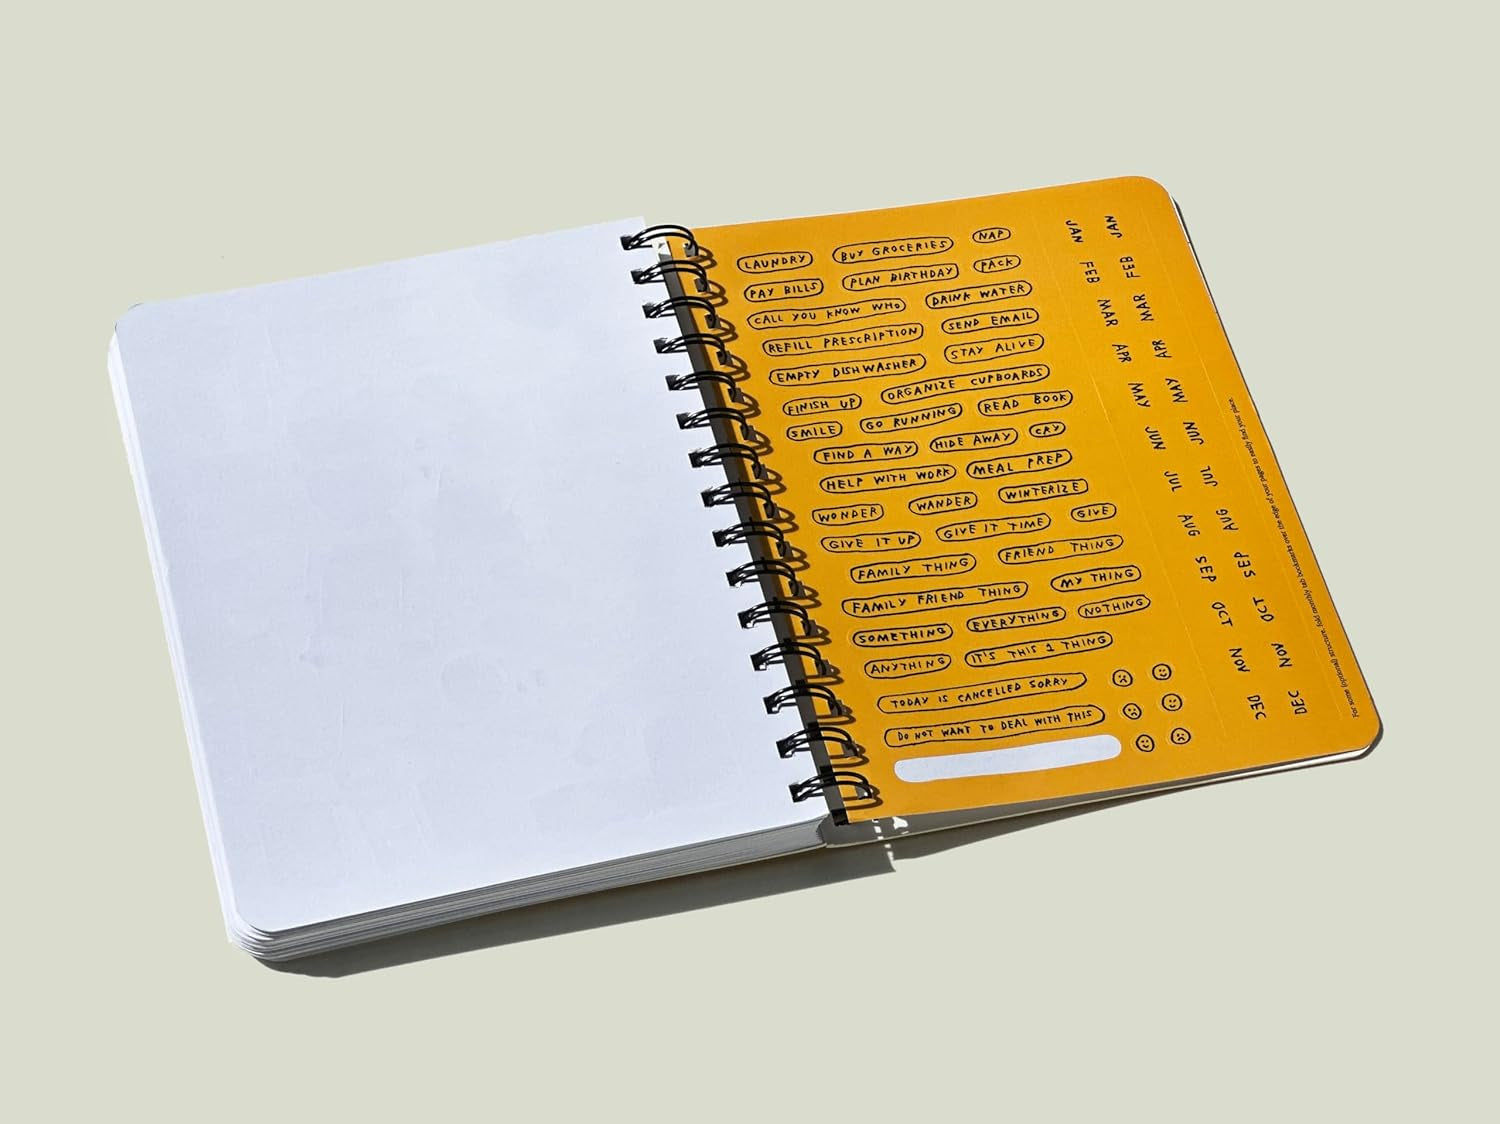 LAUNDRY BUY GROCERIES NAP
PAY BILLS PLAN BIRTHDAY PACK
CALL YOU KNOW WHO DRINK WATER
REFILL PRESCRIPTION SEND EMAIL
EMPTY DISHWASHER STAY ALIVE
FINISH UP ORGANIZE CUPBOARDS
SMILE GO RUNNING READ BOOK
FIND A WAY HIDE AWAY CRY
HELP WITH WORK MEAL PREP
WONDER WANDER WINTERIZE
GIVE IT UP GIVE IT TIME GIVE
FAMILY THING FRIEND THING
FAMILY FRIEND THING MY THING
SOMETHING EVERYTHING NOTHING
ANYTHING IT'S THIS 1 THING
TODAY IS CANCELLED SORRY
DO NOT WANT TO DEAL WITH THIS
JAN JAN
FEB FEB
MAR MAR
APR APR
MAY MAY
JUN JUN
JUL JUL
AUG AUG
SEP SEP
OCT OCT
NOV NOV
DEC DEC
For some (optional) structure, fold monthly tab bookmarks over the edge of your pages to easily find your place.